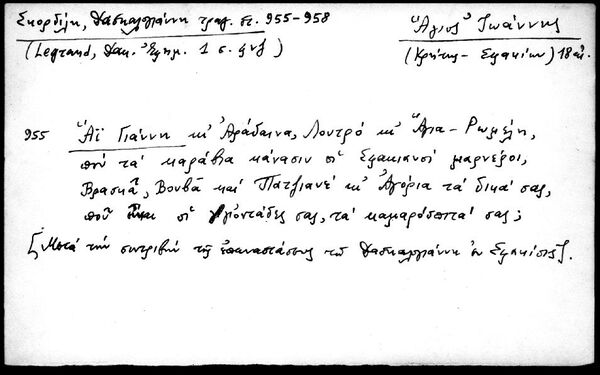 Σκορδίλη, Δασκαλογιάννη τραγ. στ. 955-958
(Legrand, Δακ. Ἐφημ. 1 σ. ϟνζ)
Ἅγιος Ἰωάννης
(Κρήτης - Σφακίων) 18 αἰ.
955 Ἅϊ Γιάννη κι' Ἀράδαινα, Λουτρό κι' Ἅγια-Ρωμέλη,
πού τά καράβια κάνασιν οἱ Σφακιανοί μαρνέροι,
Βρασκᾶ, Βουβᾶ καί Πατζιανέ κι' Ἀγόρια τά δικά σας,
ποῦ εἶναι οἱ γιόντάδες σας, τά καμαρόσπιτά σας;
[Μετά τήν συντριβήν τῆς ἐπαναστάσεως τοῦ Δασκαλογιάννη ἐν Σφακίοις].